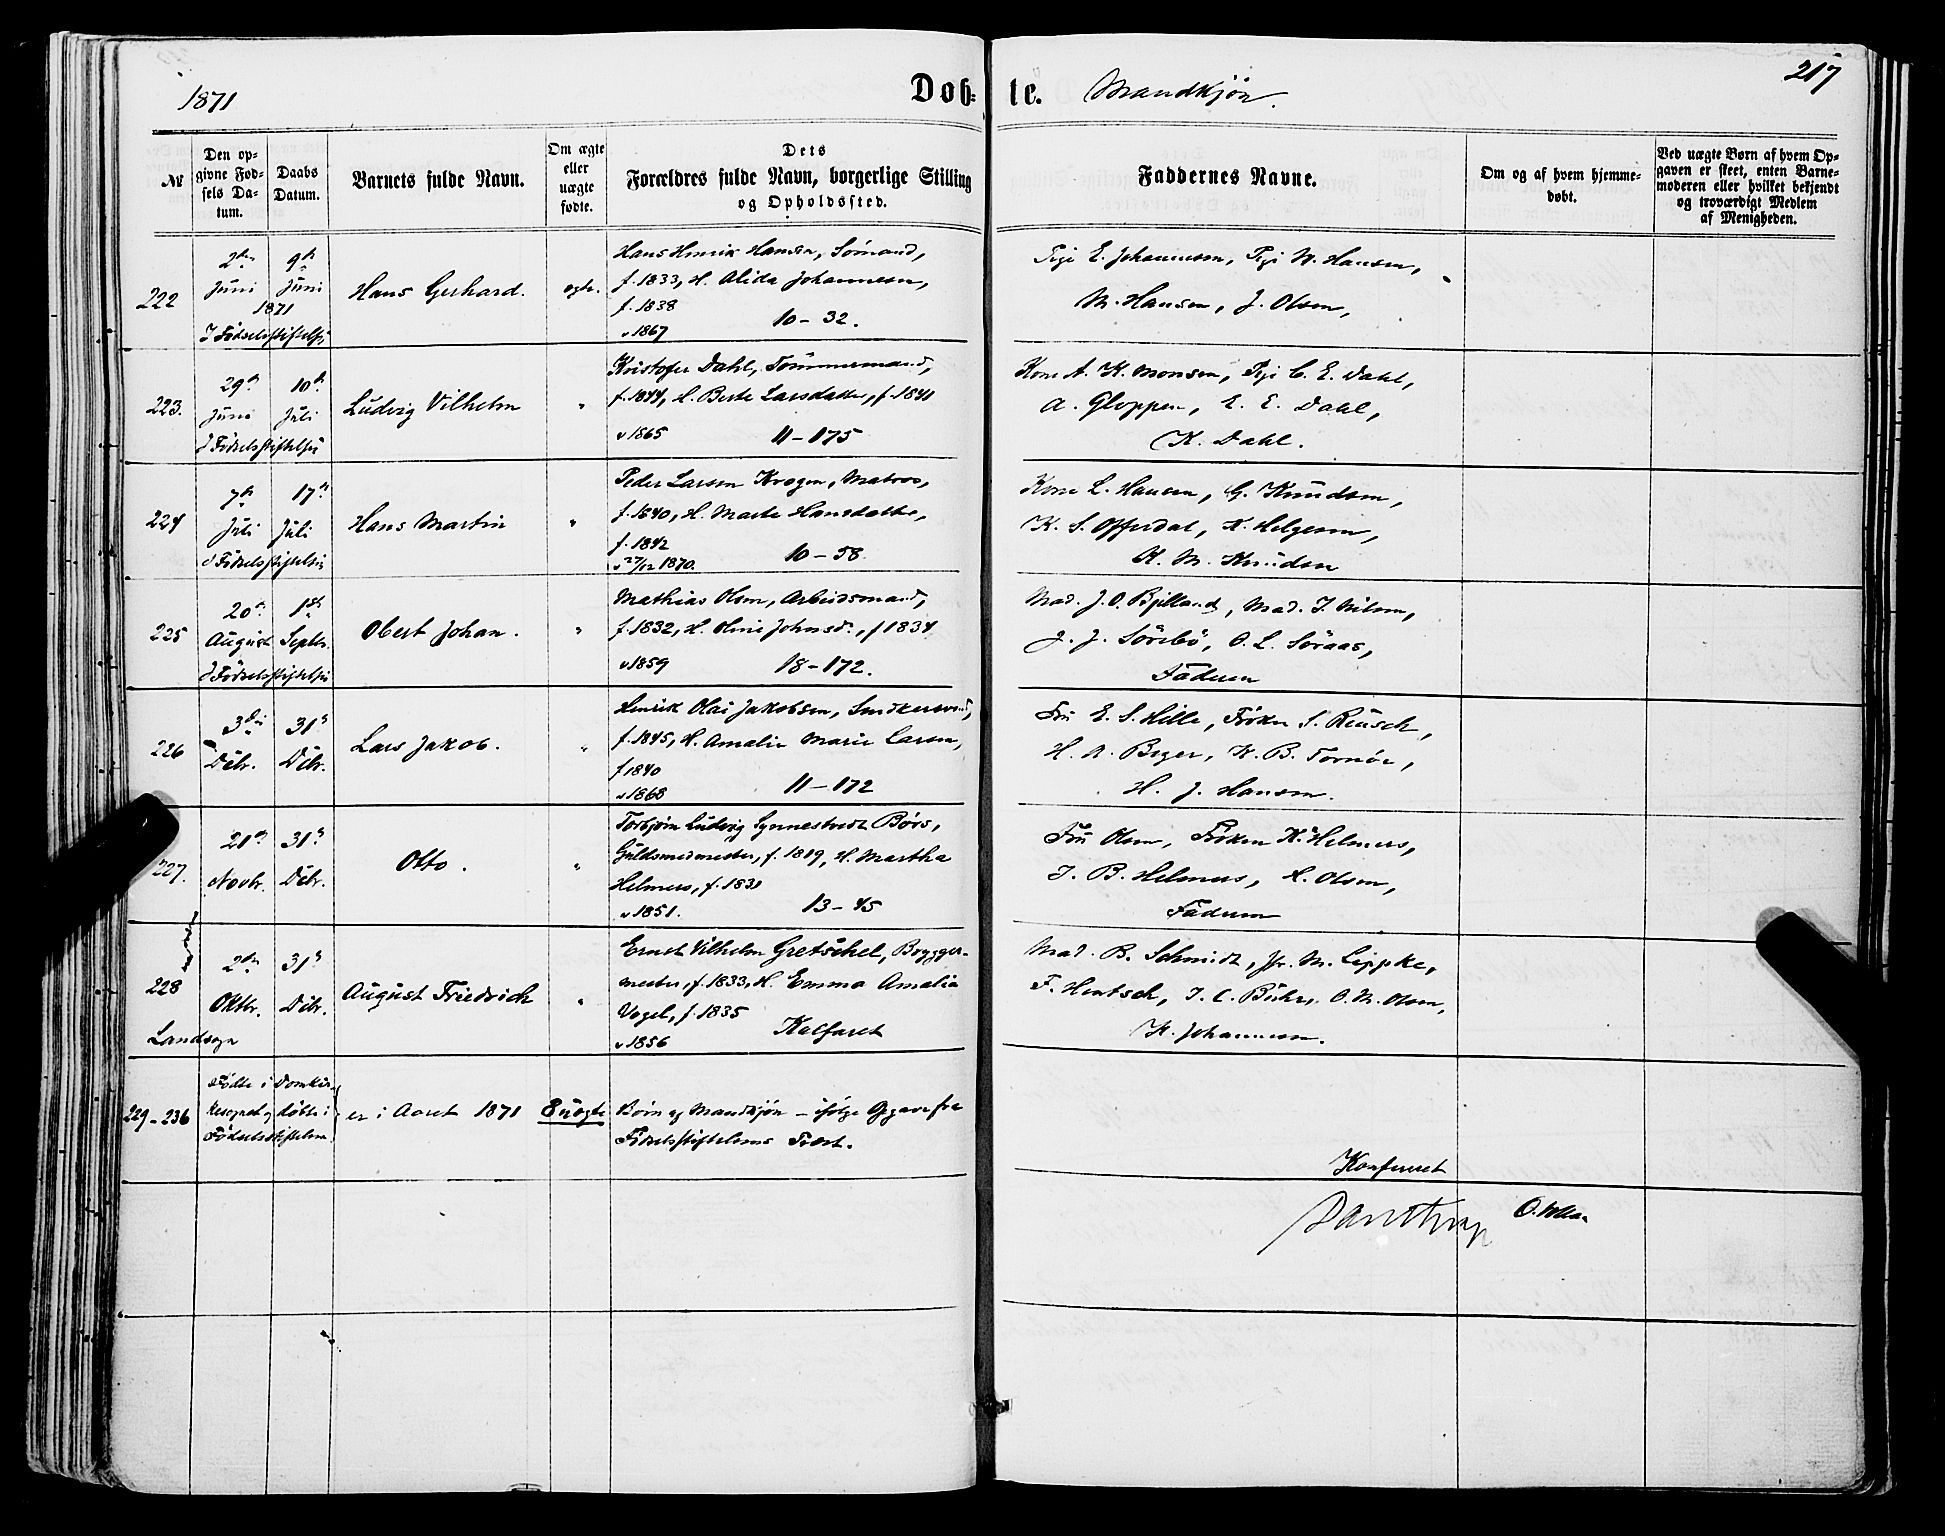 1871
Døb-
te.
Mandkjön.
217
№
Den op-
givne Fød-
sels Da-
tum.
Daabs
Datum.
Barnets fulde Navn.
Om ægte
eller
uægte
fødte.
Dets
Forældres fulde Navn, borgerlige Stilling
og Opholdssted.
Faddernes Navne.
Om og af hvem hjemme-
døbt.
Ved uægte Børn af hvem Op-
gaven er skeet, enten Barne-
moderen eller hvilket bekjendt
og troværdigt Medlem
af Menigheden.
222
2den
Juni
9de
Juni
1871
I Födselsstiftelsen
Hans Gerhard.
egte.
Hans Henrik Hansen, Sömand,
f. 1833, H. Alida Johannesen,
f. 1838
v 1867 10-32.
Pige E. Johannesen, Pige N. Hansen,
M. Hansen, J. Olsen,
223.
29de
Juni
10de
Juli
I Födselsstiftelsen
Ludvig Vilhelm
"
Kristofer Dahl, Tömmermand,
f. 1844, H. Berte Larsdatter, f. 1841
v 1865 11-175
Kone A. K. Monsen, Pige C. E. Dahl,
A. Gloppen, E. E. Dahl,
K. Dahl.
224
7de
Juli
17de
Juli
I Födselsstiftelsen
Hans Martin
"
Peder Larsen Krogen, Matros,
f. 1840, H. Marte Hansdatter,
f. 1842
v 27/12 1870. 10-58.
Kone L. Hansen, G. Knudsen,
K. S. Offerdal, K. Helgesen,
K. M. Knudsen
225
20de
August
1ste
Septbr.
I Födselsstiftelsen
Obert Johan.
"
Mathias Olsen, Arbeidsmand,
f. 1832, H. Oline Johnsd., f 1834
v 1859 18-172.
Mad. J. O. Bjelland, Mad. I. Nilsen,
J. J. Sörebö, O. L. Söraas,
Faderen
226
3die
Dcbr.
31te
Dcbr.
Lars Jakob.
"
Henrik Olai Jakobsen, Snedkersvend,
f. 1845, H. Amalie Marie Larsen,
f 1840
v 1868 11-172
Fru E. S. Hille, Fröken S. Reusch,
H. A. Beyer, K. B. Tornöe,
H. J. Hansen.
227.
21de
Novbr.
31te
Dcbr.
Otto.
"
Torbjörn Ludvig Synnestvedt Börs,
Guldsmedmester, f. 1819, H. Martha
Helmers, f. 1831
v 1851. 13-45
Fru Olsen, Fröken K. Helmers,
J. B. Helmers, H. Olsen,
Faderen
228
Landsogn
2den
Oktbr.
31te
Dcbr.
August Friedrich
"
Ernst Vilhelm Gretschel, Brygger-
mester, f. 1833, H. Emma Amalia
Vogel, f. 1835
v 1856 Kalfaret
Mad. B. Schmidt, Jfr. M. Lippke,
F. Hentsch, J. C. Buhr, O. M. Olsen,
K. Johannesen.
229-236
Födte i Domkir-
kesognet og döbte i
Födselsstiftelsen
er i Aaret 1871 8 uegte
Börn af Mandkjön - ifölge Opgave fra
Födselsstiftelsens Præst.
Konfereret
Daustrup